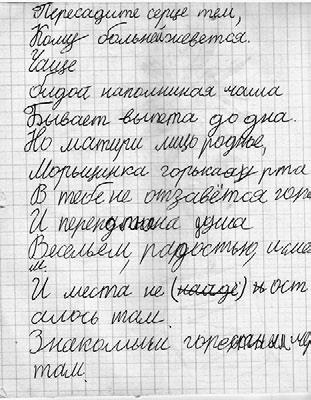 Пересадите серце тем,
Кому больней жевется.
Чаще
бидой напомниная чаша
Бывает выпета до дна.
Но матири лицо родное,
Морьщинка горькая у рта
В тебе не отзавётся горе
И переполнина душа
Весельем, радостью,
м.
И места не (нааде) н ост
алось там.
Знакомым горе
там.